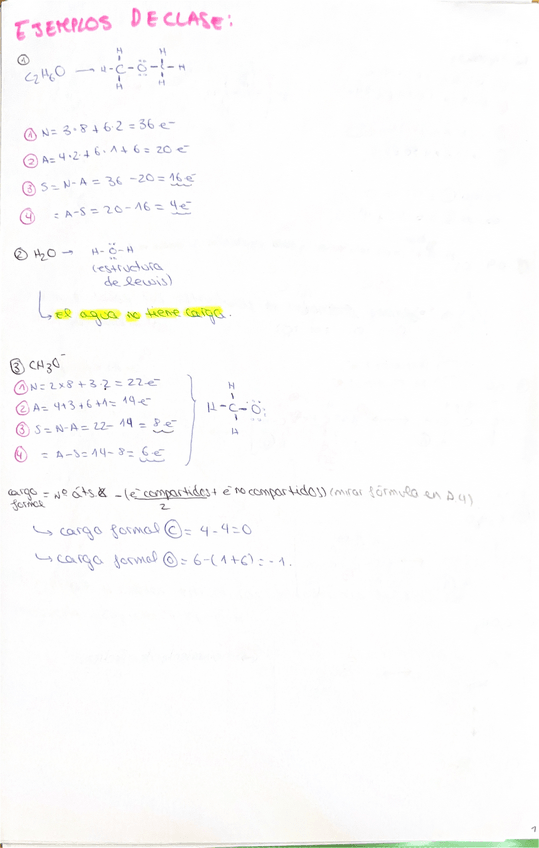 EJEMPLOS DE CLASE:
①
C2H6O → H-C-O-C-H
H H
H H
① N= 3·8 + 6·2 = 36 e-
② A= 4·2 + 6·1 + 6 = 20 e-
③ S= N-A = 36 - 20 = 16 e-
④ = A-S = 20 - 16 = 4 e-
② H2O → H-O-H
(estructura
de lewis)
↳ el agua no tiene carga.
③ CH3O-
① N= 2x8 + 3·2 = 22 e-
② A= 4+3+6+1 = 14 e-
③ S= N-A = 22 - 14 = 8 e-
④ = A-S = 14 - 8 = 6 e-
H
H-C-O:
H
carga formal = Nº - (e- compartidos/2 + e- no compartidos) (mirar fórmula en)
↳ carga formal Ⓒ = 4-4=0
↳ carga formal Ⓞ = 6-(1+6) = -1.
1